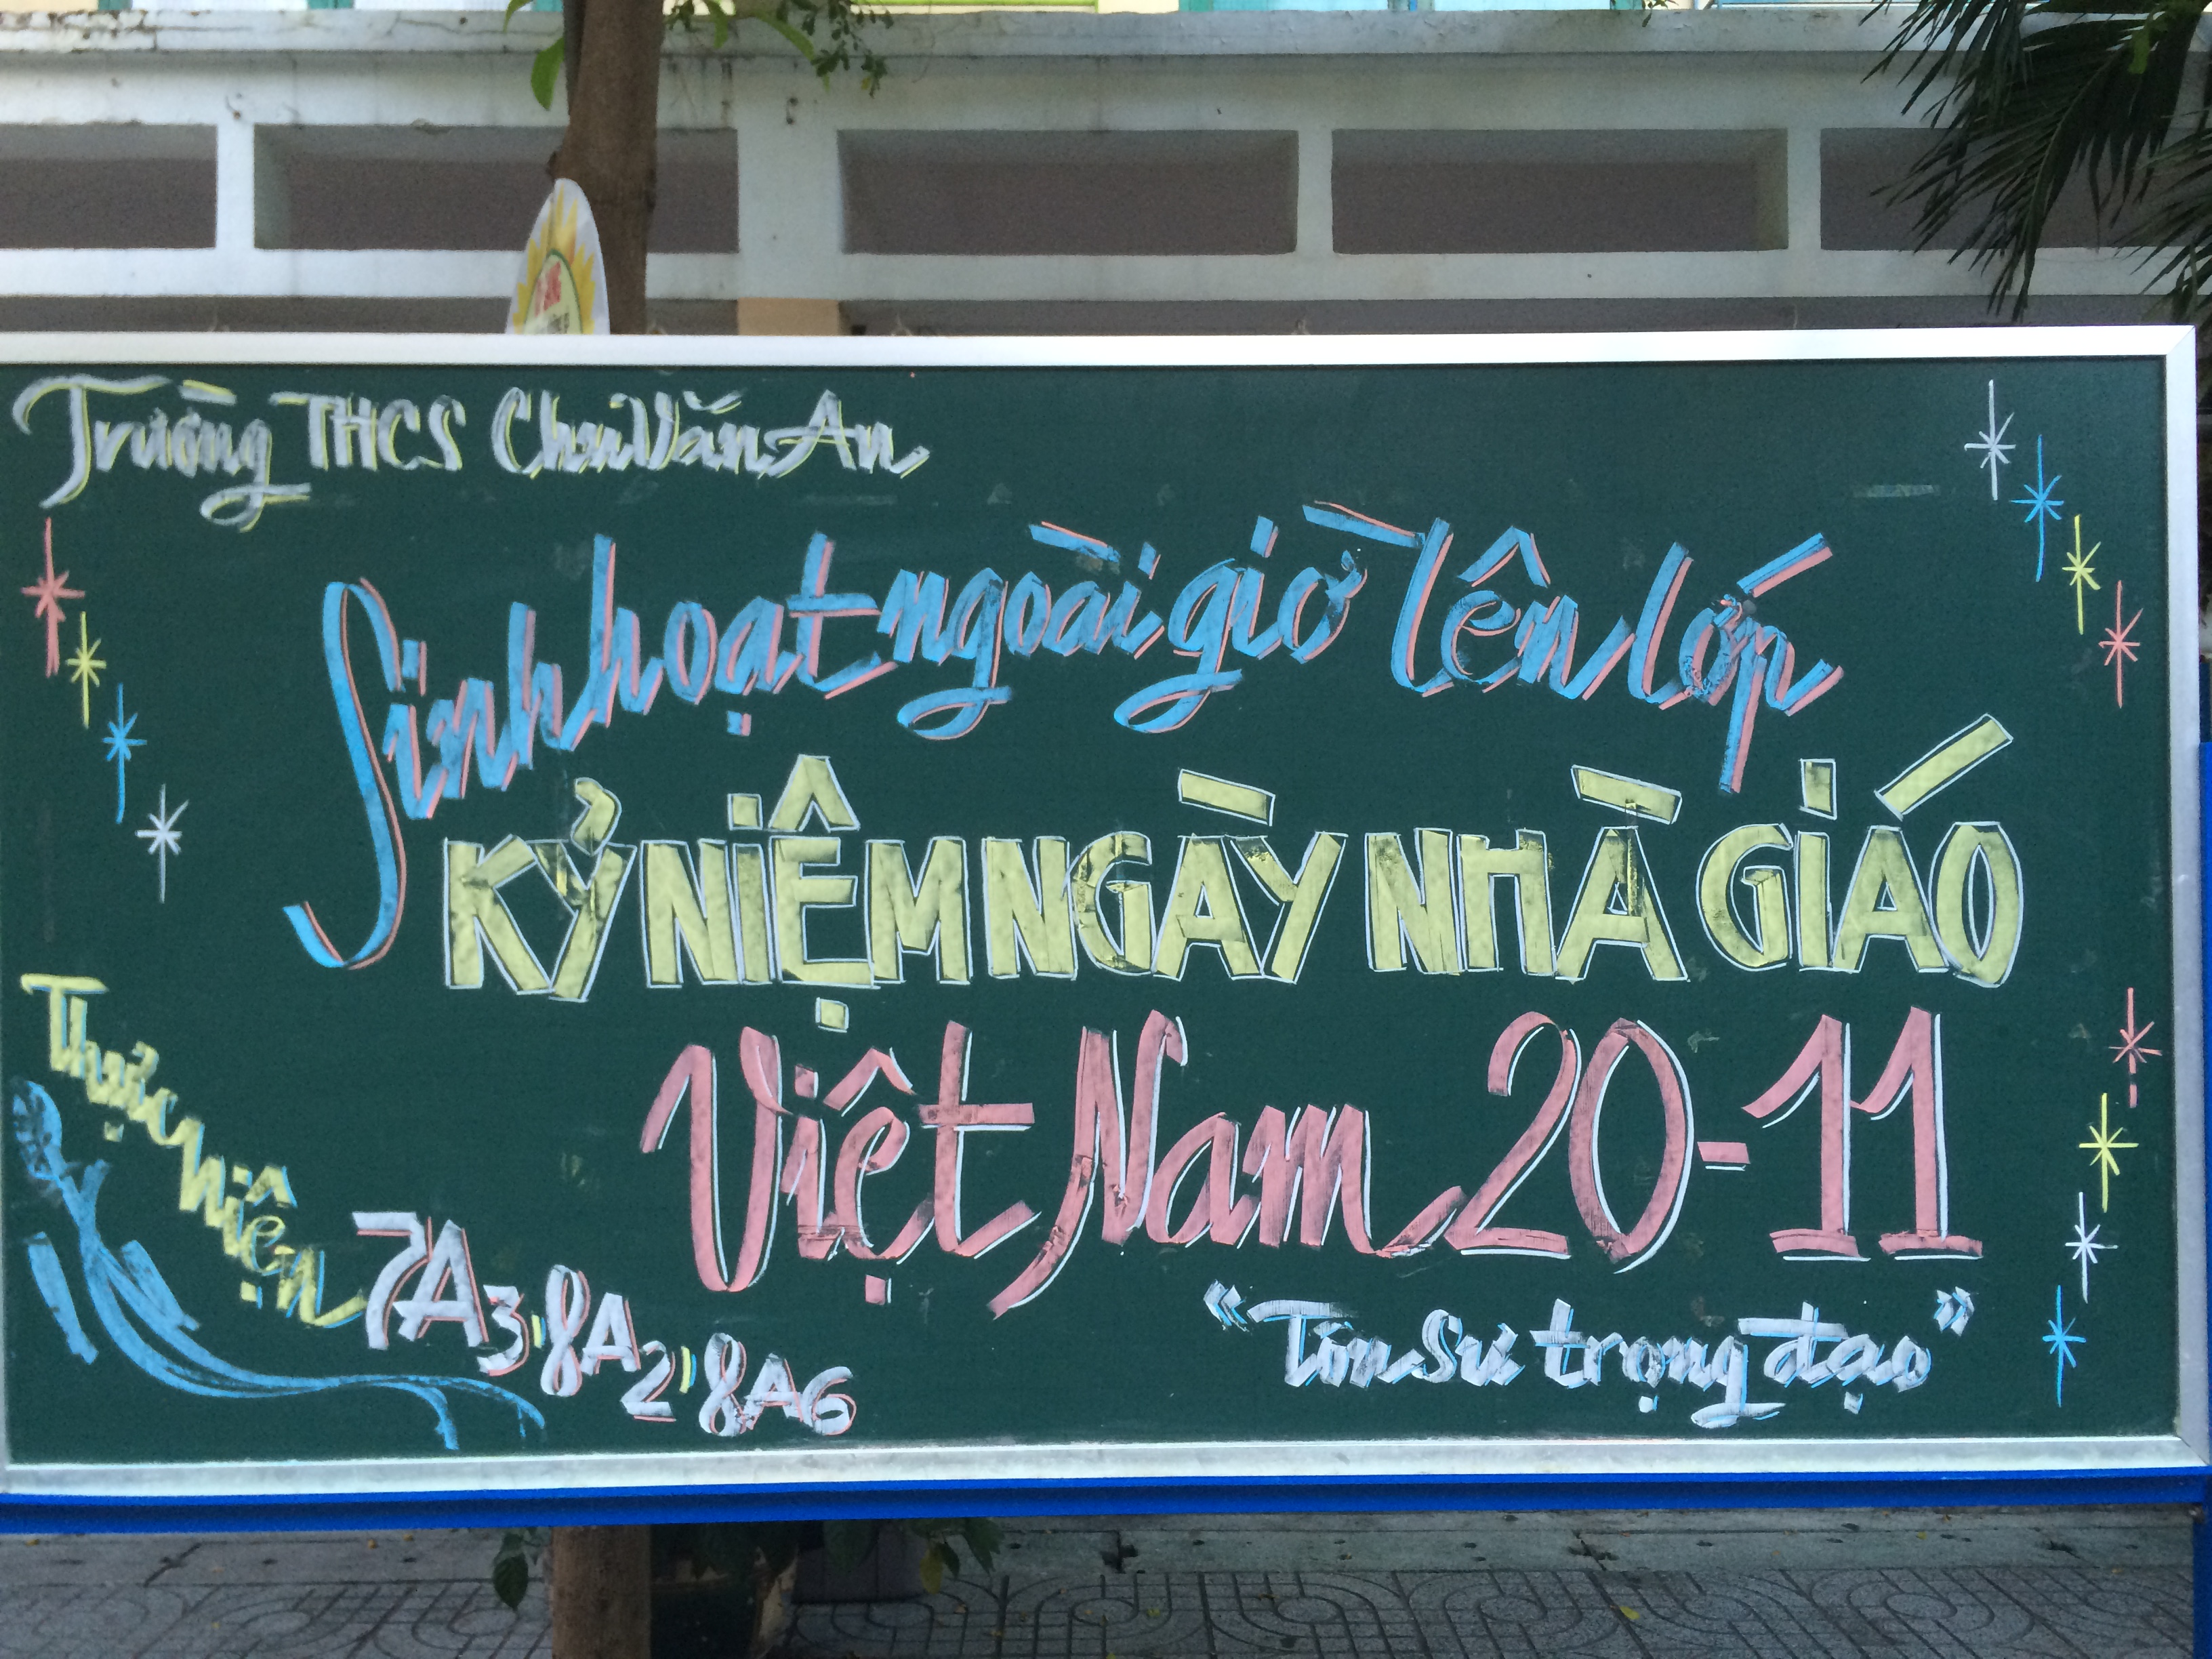 Trường THCS Chu Văn An
Sinh hoạt ngoài giờ lên lớp
KỶ NIỆM NGÀY NHÀ GIÁO
Việt Nam 20-11
Thực hiện
7A3, 8A2, 8A6
"Tôn Sư trọng đạo"